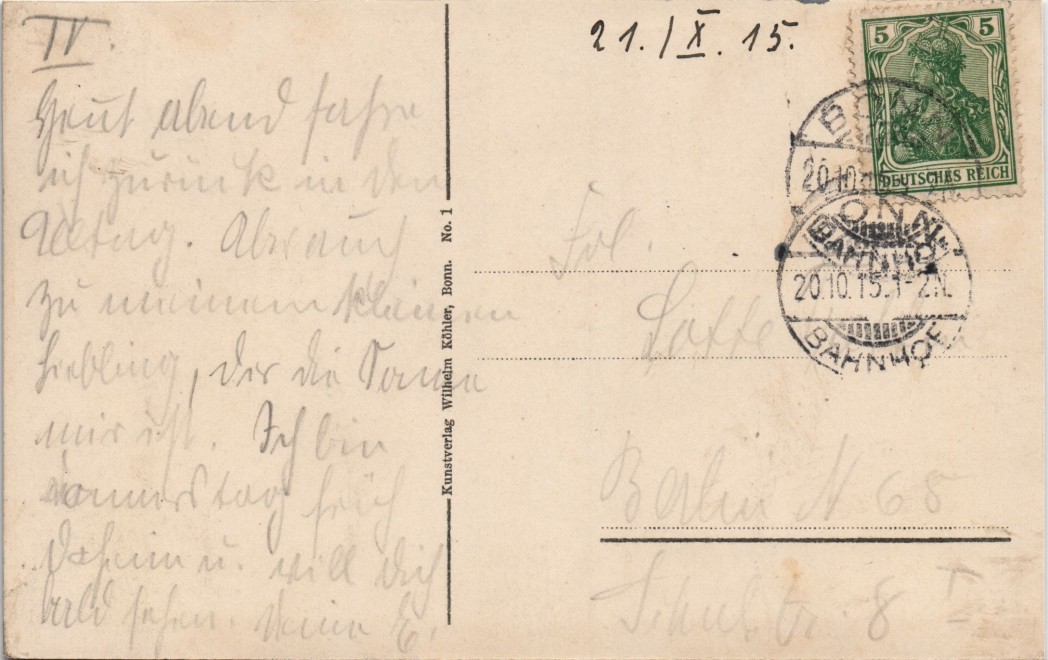 IV.
Heut abend fahre
ich zurück in den
Alltag. Aber auch
zu meinem kleinen
Liebling, der die Sonne
mir ist. Ich bin
früh
daheim u. will dich
bald sehen. Deine E.
Kunstverlag Wilhelm Köhler, Bonn. No. 1
21./X. 15.
5 5
DEUTSCHES REICH
BONN
20.10.
BONN
BAHNHOF
20.10.15.1-2N.
BAHNHOF
Frl.
Lotte
Berlin N 65
8 I